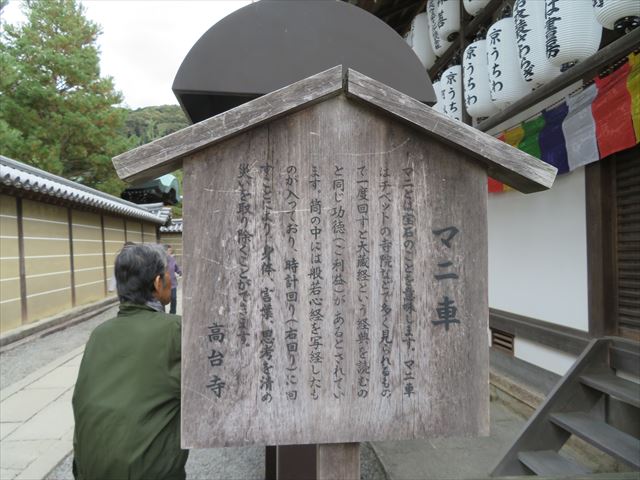 マニ車
マニとは宝石のことを意味します。マニ車
はチベットの寺院などで多く見られるもの
で一度回すと大蔵経という経典を読むの
と同じ功徳(ご利益)があるとされてい
ます。筒の中には般若心経を写経したも
のが入っており、時計回り(右回り)に回
すことにより、身体、言葉、思考を清め
災いを取り除くことができます。
高台寺
京うちわ
京うちわ